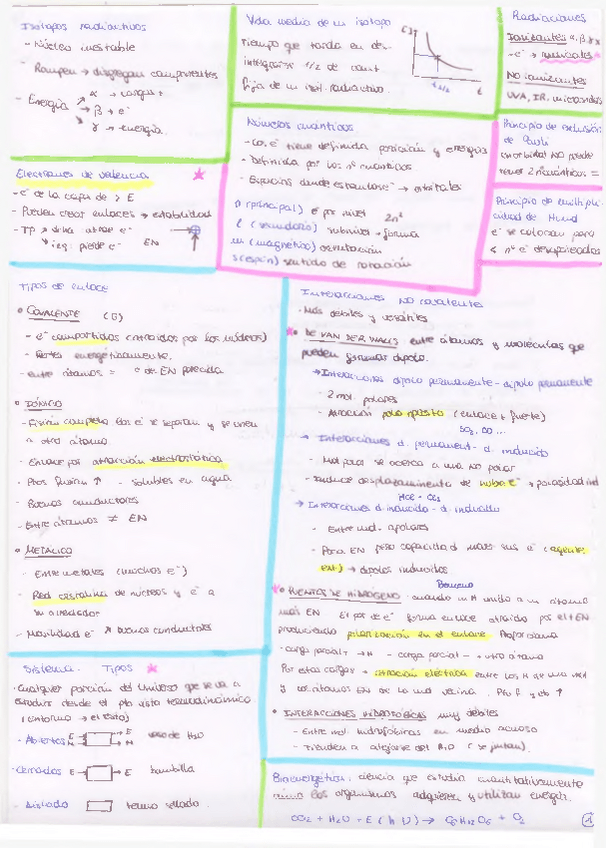 Isótopos radiactivos
- Núcleo inestable
- Rompen → disgregan componentes
- Energía
α → cargas +
β → e⁻
γ → energía.
Vida media de un isótopo
Tiempo que tarda en des-
integrarse 1/2 de cant
fija de un isót. radiactivo.
t 1/2
t
Radiaciones
Ionizantes α, β, γ, x
-e⁻ → radicales
NO ionizantes
UVA, IR, microondas
Números cuánticos
- Los e⁻ tiene definida posición y energías
- Definida por los nº cuánticos
- Espacios donde estan los e⁻ → orbitales
n (principal) e⁻ por nivel 2n²
l (secundario) subnivel → forma
m (magnético) orientación
s (espín) sentido de rotación
Principio de exclusión
de Pauli
orbital NO puede
tener 2 nº cuánticos =
Principio de multipli-
cidad de Hund
e⁻ se colocan para
< nº e⁻ desapareados
Electrones de valencia
- e⁻ de la capa de > E
- Pueden crear enlaces → estabilidad
- TP → dcha atrae e⁻
→ izq: pierde e⁻ EN
Tipos de enlace
• COVALENTE (G)
- e⁻ compartidos (atraídos por los núcleos)
- Fuertes energéticamente.
- entre átomos = o de EN parecida
• IÓNICO
- Fisión completa los e⁻ se separan y se unen
a otro átomo
- Enlace por atracción electrostática
- Ptos fusión ↑ - solubles en agua
- Buenos conductores
- Entre átomos ≠ EN
• METÁLICO
- Entre metales (muchos e⁻)
- Red cristalina de núcleos y e⁻ a
su alrededor
- Movilidad e⁻ ↗ buenos conductores
Interacciones NO covalentes
- Más débiles y versátiles
• DE VAN DER WALLS entre átomos y moléculas que
pueden formar dipolo.
→ Interacciones dipolo permanente - dipolo permanente
- 2 mol polares
- Atracción polo opuesto (enlace + fuerte)
SO₂, CO ...
→ Interacciones d. permanent - d. inducido
- Mol polar se acerca a una no polar
- Induce desplazamiento de nube e⁻
→ Interacciones d inducido - d. inducido
- Entre mol. apolares
- Poca EN pero capacidad mover sus e⁻ (agente
ext) → dipolos inducidos
Benceno
• PUENTES DE HIDRÓGENO cuando un H unido a un átomo
más EN El par de e⁻ forma enlace atraído por el + EN
produciendo polarización en el enlace
- carga parcial + → H - carga parcial - → otro átomo
Por estas cargas → atracción eléctrica entre los H de una mol
y los átomos EN de la mol vecina.
• INTERACCIONES HIDROFÓBICAS muy débiles
- Entre mol. hidrofóbicas en medio acuoso
- Tienden a alejarse del H₂O (se juntan).
Sistema. Tipos
- Cualquier porción del Universo que se va a
estudiar desde el pto vista termodinámico
(entorno → el resto)
- Abiertos E M → E M vaso de H₂O
- Cerrados E → E bombilla
- Aislado termo sellado.
Bioenergética: ciencia que estudia cuantitativamente
cómo los organismos adquieren y utilizan energía.
CO₂ + H₂O + E (hν) → C₆H₁₂O₆ + O₂
1